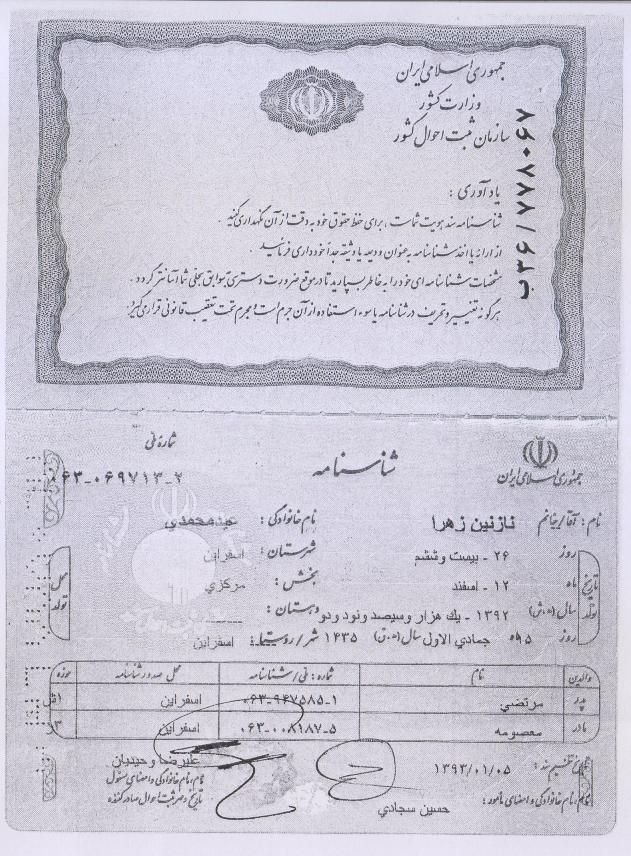 جمهوری اسلامی ایران
وزارت کشور
سازمان ثبت احوال کشور
ب۳۶/۸۷۷۸۰۶۷
یادآوری :
شناسنامه سند هویت شماست ، برای حفظ حقوق خود به دقت از آن نگهداری کنید .
از ارائه یا اخذ شناسنامه به عنوان ودیعه یا وثیقه جداً خودداری فرمائید .
مشخصات شناسنامه ای خود را به خاطر بسپارید تا در موقع ضرورت دسترسی به سوابق سجلی شما آسانتر گردد .
هرگونه تغییر و تحریف در شناسنامه یا سوء استفاده از آن جرم است و مجرم تحت تعقیب قانونی قرار می گیرد .
جمهوری اسلامی ایران
شناسنامه
شماره ملی
۰۶۳-۰۶۹۷۱۳-۲
نام : آقا/خانم نازنین زهرا نام خانوادگی :
روز ۲۶ - بیست وششم شهرستان : اسفراین
ماه ۱۲ - اسفند بخش : مرکزي
سال (ه.ش) ۱۳۹۲ - یك هزار وسیصد ونود ودو دهستان : ------
روز ۱۵ ماه جمادي الاول سال (ه.ق) ۱۴۳۵ شهر/روستا : اسفراین
تاریخ تولد
محل تولد
والدین نام شماره : ملی/شناسنامه محل صدور شناسنامه حوزه
پدر مرتضي ۰۶۳-۹۴۷۵۸۵-۱ اسفراین
مادر معصومه ۰۶۳-۰۰۸۱۸۷-۵ اسفراین
تاریخ تنظیم سند : ۱۳۹۳/۰۱/۰۵
نام، نام خانوادگی و امضای مأمور : حسین سجادي
علیرضا وحیدیان
نام، نام خانوادگی و امضای مسئول
تاریخ و مهر ثبت احوال صادرکننده